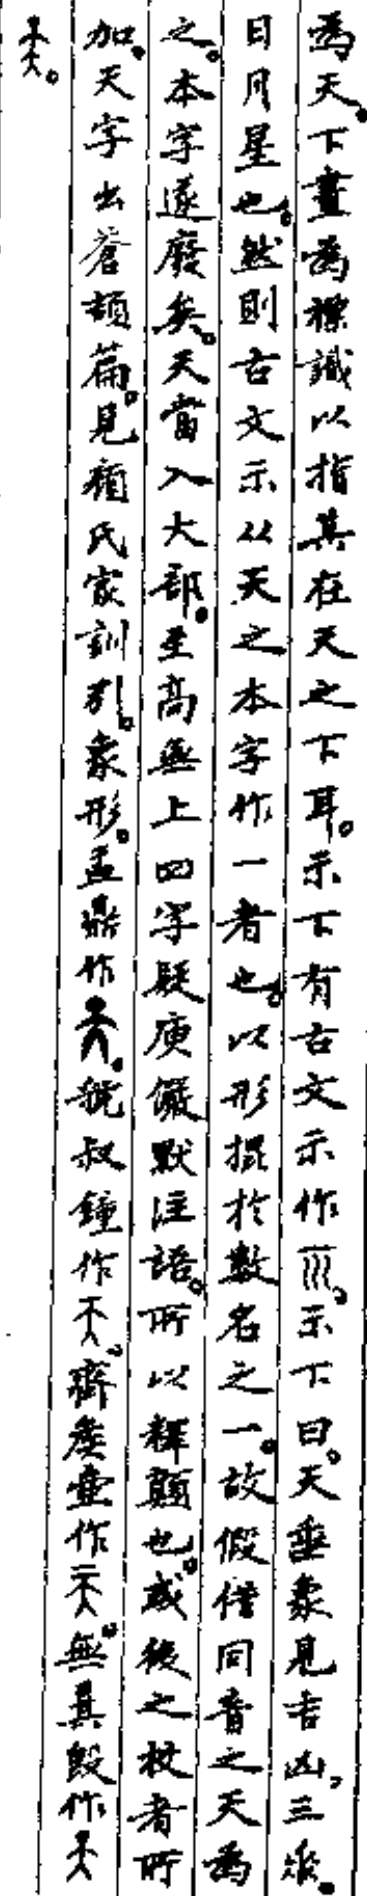 為天。下畫為標識以指其在天之下耳。示下有古文示作𠕀。示下曰。天垂象見吉凶,三垂。
日月星也。然則古文示从天之本字作一者也。以形掍於數名之一。故假借同音之天為
之。本字遂廢矣。天當入大部。至高無上四字疑庾儼默注語。所以釋顛也。或後之校者所
加。天字出蒼頡篇。見顏氏家訓引。象形。盂鼎作。虢叔鐘作。齊矦壺作。無㠱𣪘作